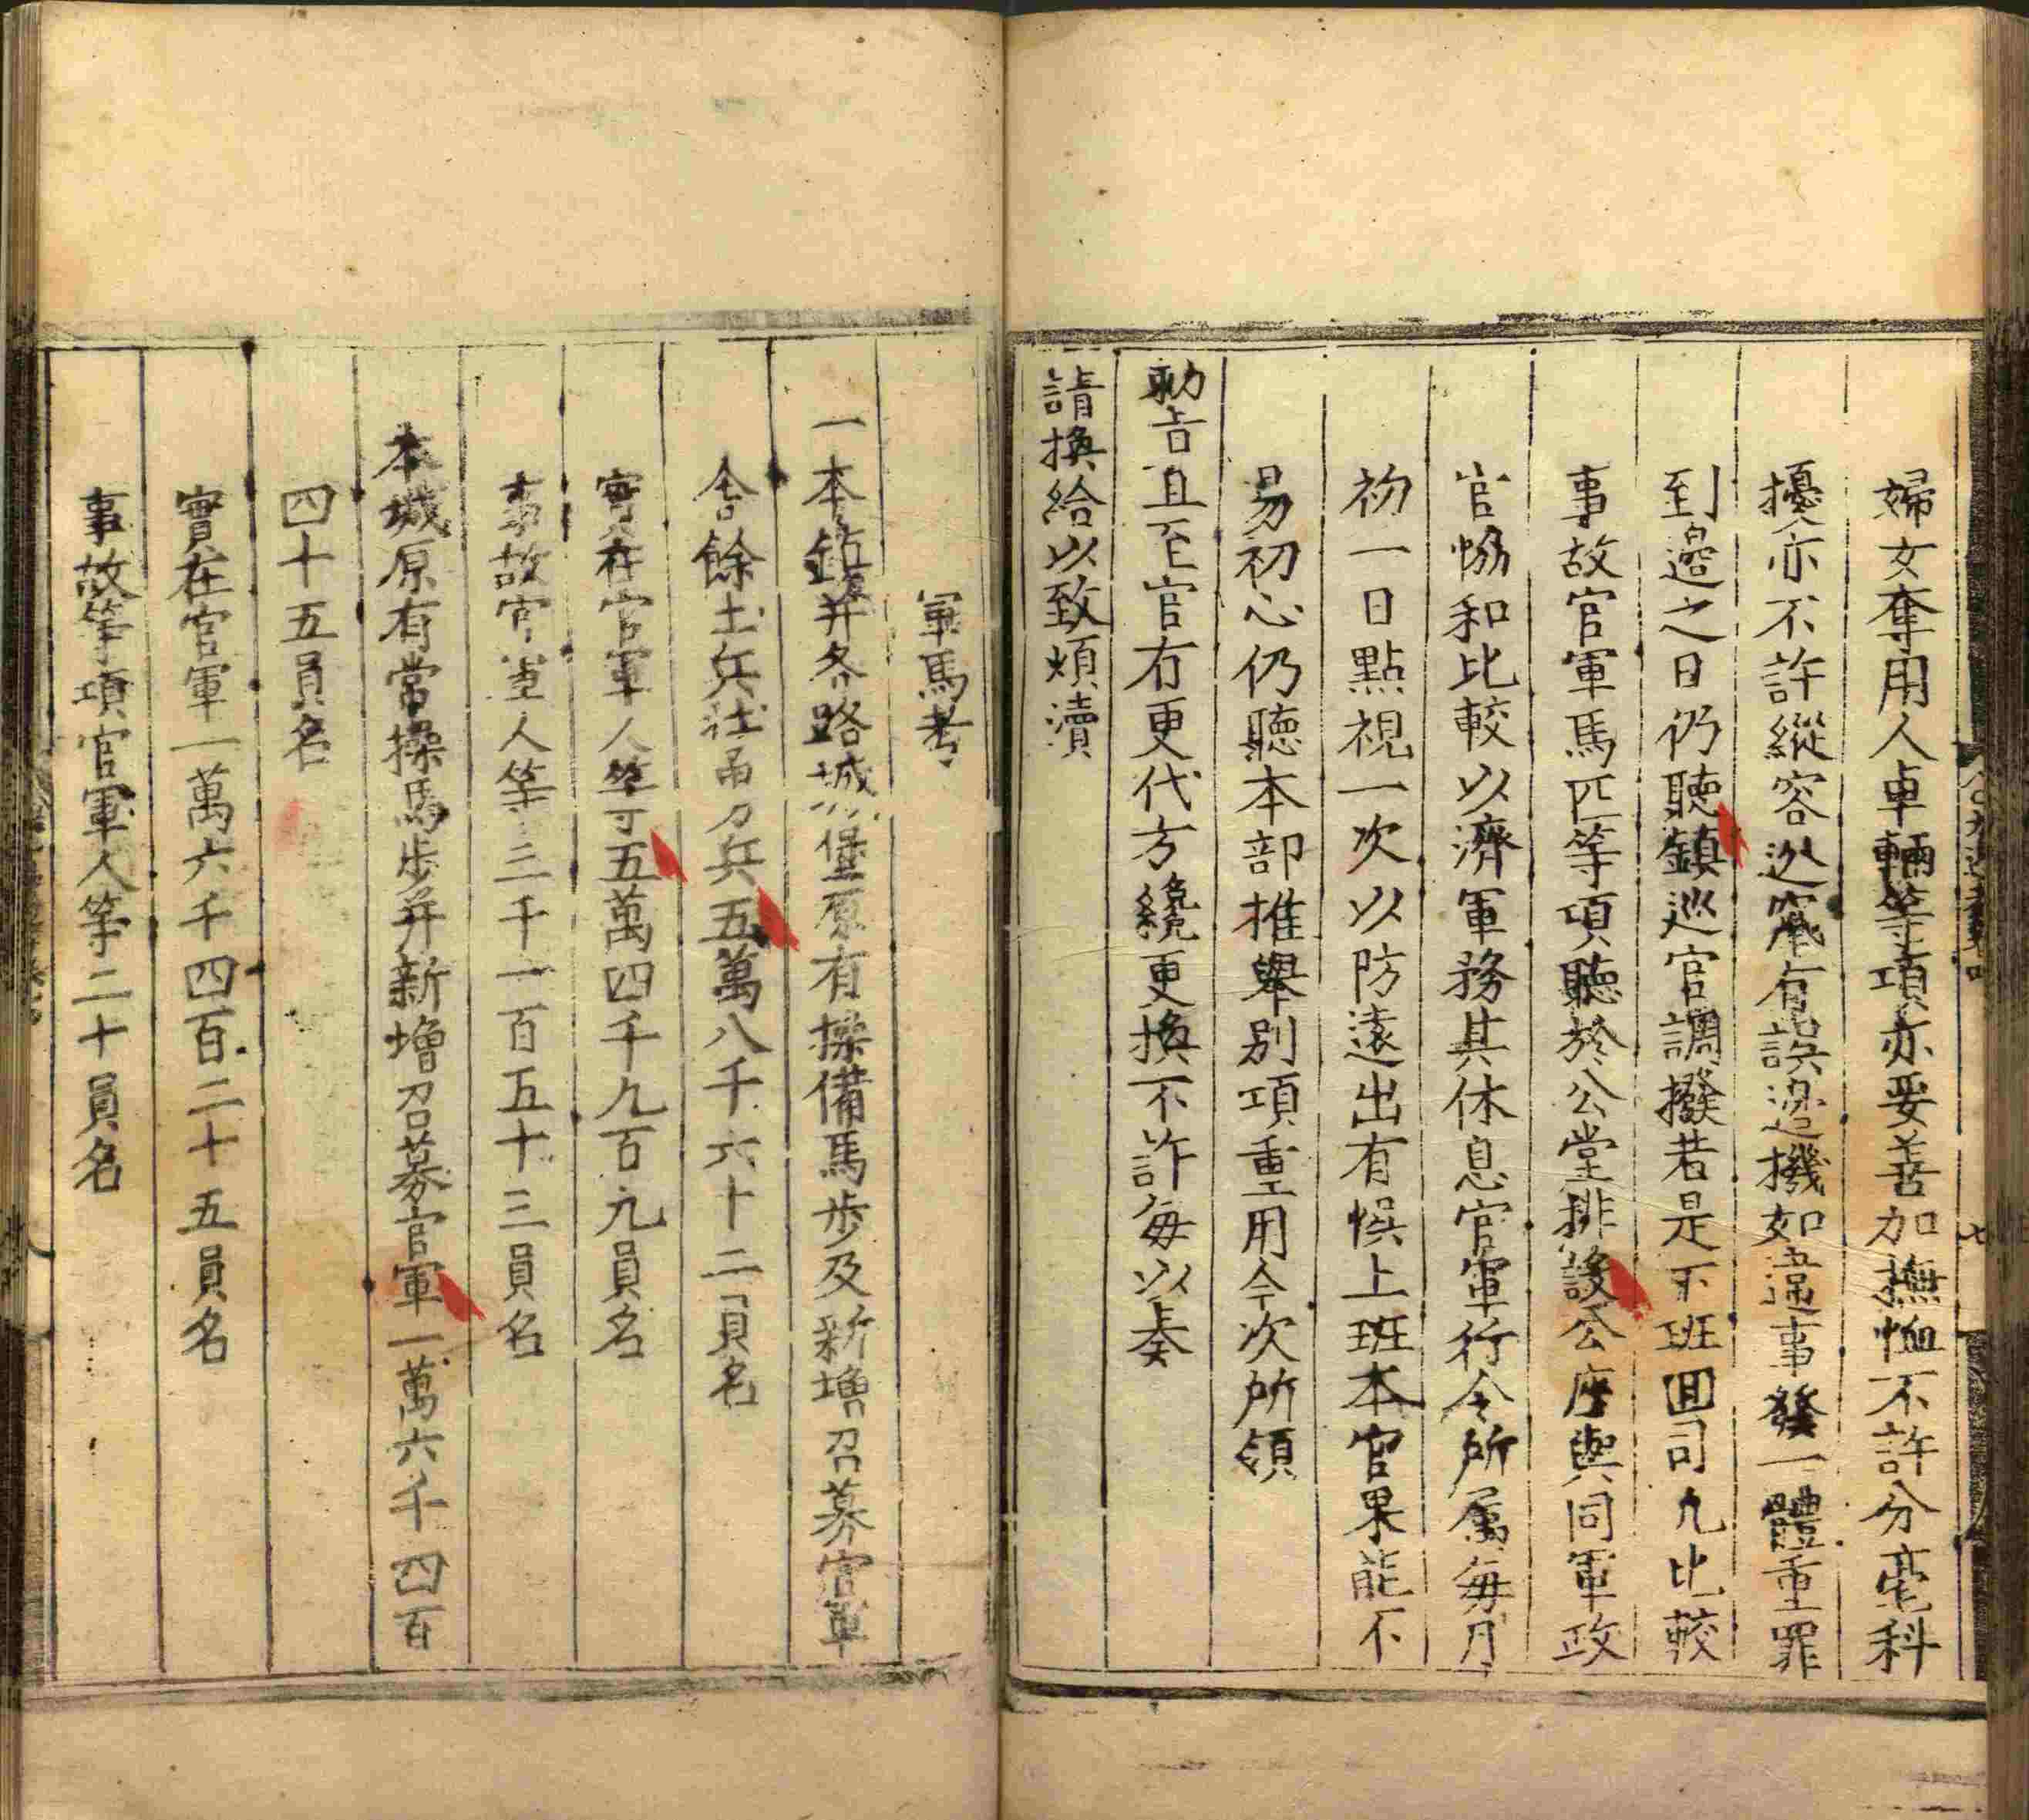 婦女奪用人車輛等項亦要善加撫恤不許分毫科
擾亦不許縱容巡窠有誤邊機如違事發一體重罪
到邊之日仍聽鎮巡官調撥若是下班回司凡比較
事故官軍馬匹等項聽於公堂排設公座與同軍政
官恊和比較以濟軍務其休息官軍行令所属每月
初一日點視一次以防遠出有悞上班本官果能不
易初心仍聽本部推舉别項重用今次所領
勅旨且至官有更代方纔更換不許每以奏
請換給以致煩瀆
軍馬考
一本鎮并各路城堡原有操備馬步及新增召募官軍
舍餘土兵壯勇刀兵五萬八千六十二員名
實在官軍人等五萬四千九百九員名
事故官軍人等三千一百五十三員名
本城原有常操馬步并新增召募官軍一萬六千四百
四十五員名
實在官軍一萬六千四百二十五員名
事故等項官軍人等二十員名